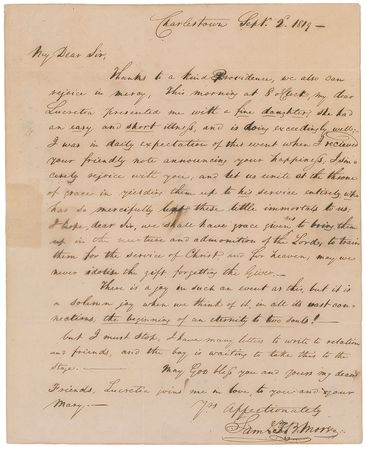 Charlestown Sept. 2d. 1819 —
My Dear Sir,
Thanks to a kind Providence, we also can
rejoice in mercy, This morning at 8 o'clock, my dear
Lucretia presented me with a fine daughter; she had
an easy and short illness, and is doing exceedingly well;
I was in daily expectation of this event when I recieved
your friendly note announcing your happiness, I sin-
cerely rejoice with you, and let us unite at the throne
of grace in yielding them up to his service entirely who
has so mercifully lent these little immortals to us,
I hope, dear Sir, we shall have grace given us to bring them
up in the nurture and admonition of the Lord, to train
them for the service of Christ and for heaven, may we
never idolise the gift forgetting the Giver. —
There is a joy in such an event as this, but it is
a solemn joy when we think of it, in all its vast con-
nections, the beginning of an eternity to two souls! —
but I must stop, I have many letters to write to relations
and friends, and the boy is waiting to take this to the
stage. — May God bless you and yours my dear
Friends, Lucretia joins me in love, to you and your
Mary. — Yrs Affectionately
Saml. F. B. Morse